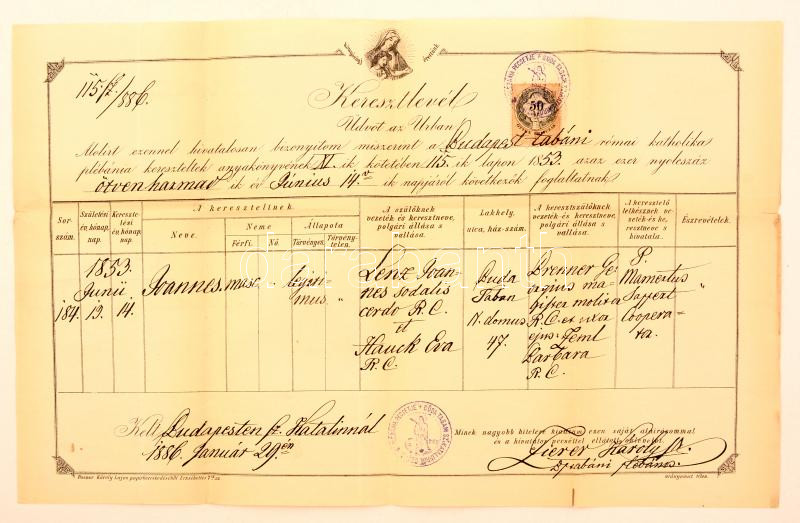 115/886.
Keresztlevél
Üdvöt az Urban!
Alulirt ezennel hivatalosan bizonyitom miszerint a Budapest tabáni római katholika
plébánia kereszteltek anyakönyvének XI. ik kötetében 115. ik lapon 1853. azaz ezer nyolcszáz
ötvenharmad ik év Június 14. ik napjáról következők foglaltatnak
Sor-szám.
Születési év hónap, nap.
Keresztelési év hónap, nap.
A kereszteltnek.
Neve.
Neme
Férfi.
Nő.
Állapota
Törvényes.
Törvénytelen.
A szülőknek vezeték és keresztneve, polgári állása s vallása.
Lakhely, utca, ház-szám.
A keresztszülőknek vezeték- és keresztneve, polgári állása s vallása.
A keresztelő lelkésznek vezeték- és keresztneve s hivatala.
Észrevételek.
1853.
Junii
184. 13. 14.
Joannes.
masc.
legiti-
mus
"
Lenz Joan-
nes sodalis
cerdo R. C.
et
Hauck Eva
R. C.
Buda
Taban
N. domus
47.
Brenner Ge-
orgius ma-
gister molitor
R. C. et uxor
ejus
Barbara
R. C.
P.
Mamertus
Coopera-
tor.
"
darabanth
Kelt Budapesten sz. Katalinnál
1886. január 29én
Minek nagyobb hitelére kiadtam ezen saját aláirásommal
és a hivatalos pecséttel ellátott oklevelet.
Károly
plébános.
Posner Károly Lajos
50